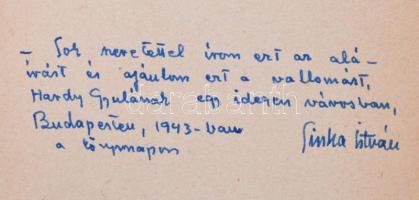 — Sok szeretettel írom ezt az alá-
írást és ajánlom ezt a vallomást,
Hardy Gyulának egy idegen városban,
Budapesten, 1943-ban
a könyvnapon Sinka István
darabanth